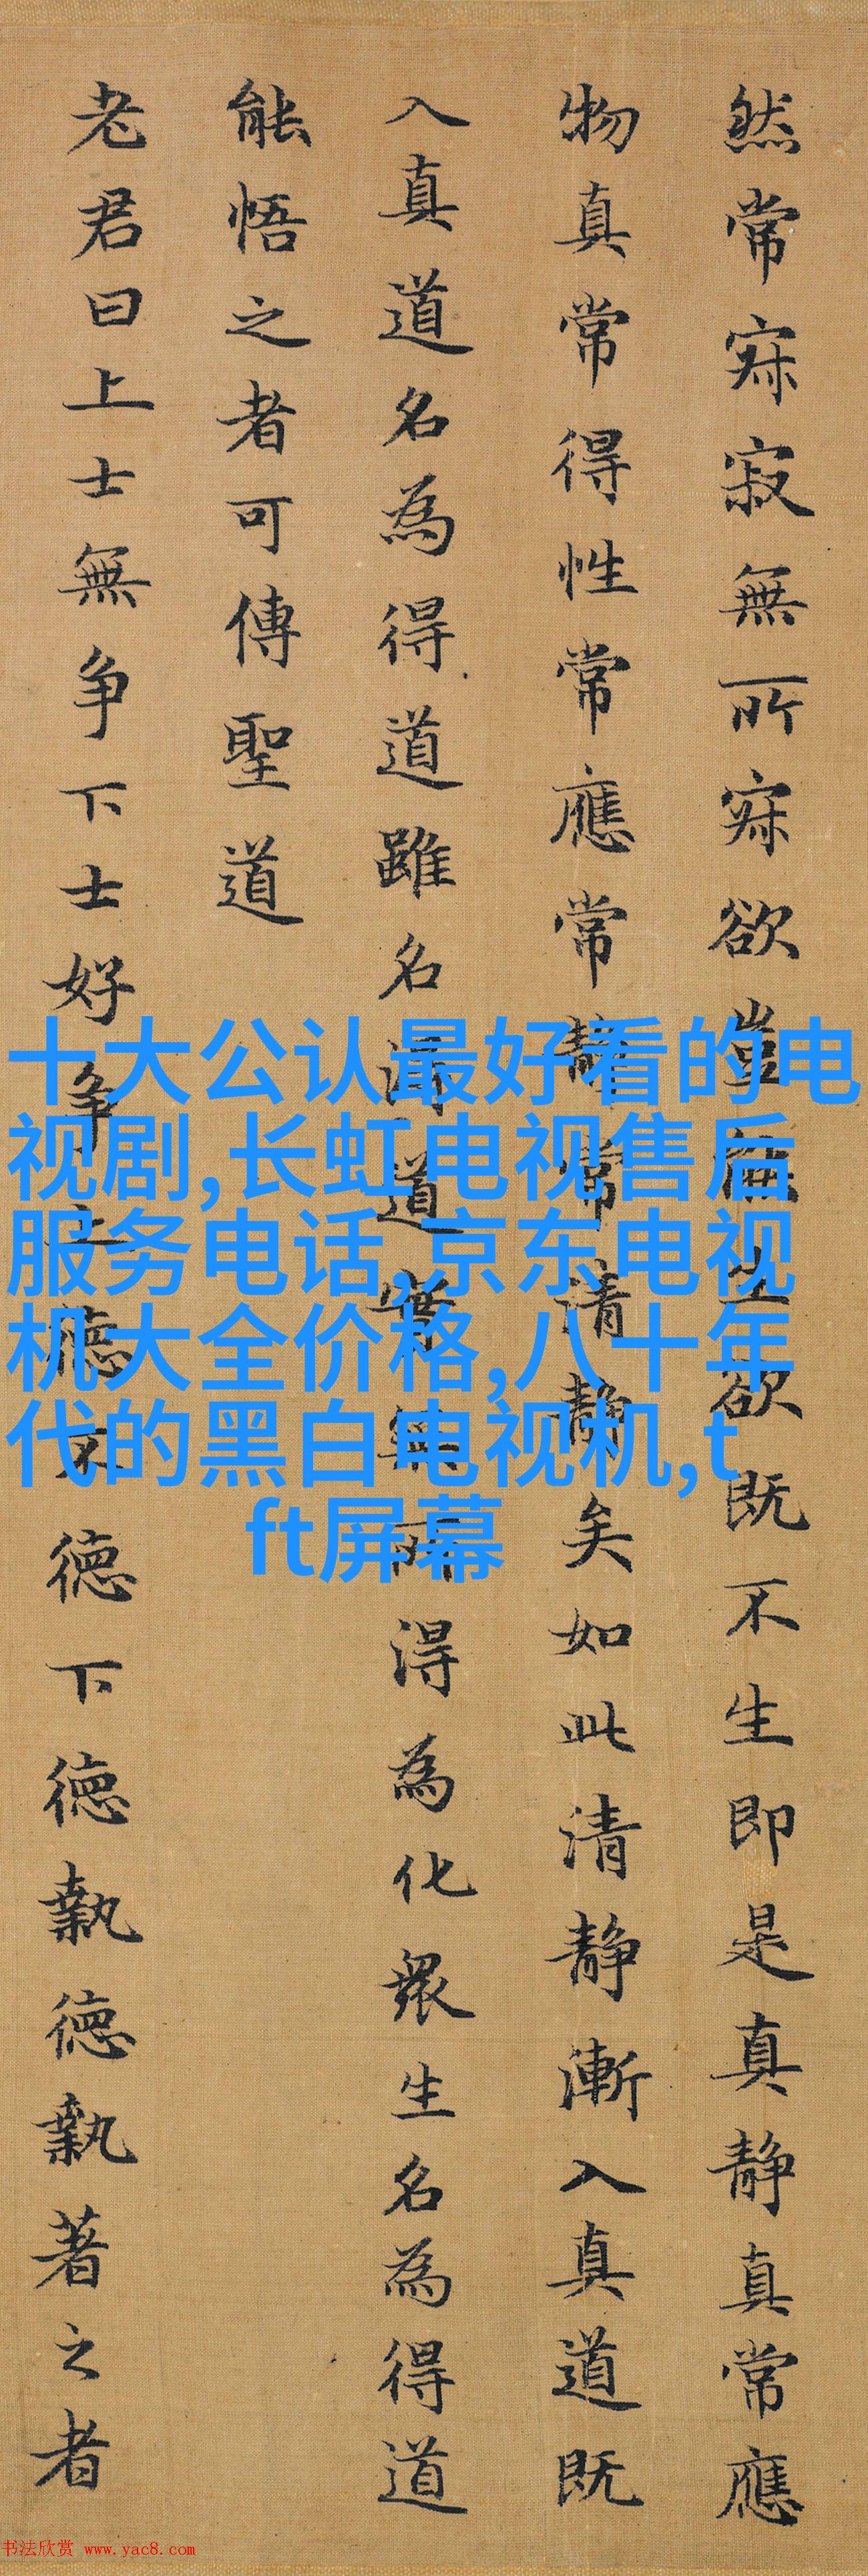 然常寂寂無所寂欲豈能生欲既不生即是真静真常應
物真常得性常應常静常清静矣如此清静漸入真道既
入真道名為得道雖名得道實無所得為化衆生名為得道
能悟之者可傳聖道
老君曰上士無争下士好争上德不德下德執德執著之者
十大公认最好看的电
视剧,长虹电视售后
服务电话,京东电视
机大全价格,八十年
代的黑白电视机,t
ft屏幕
书法欣赏 www.yac8.com